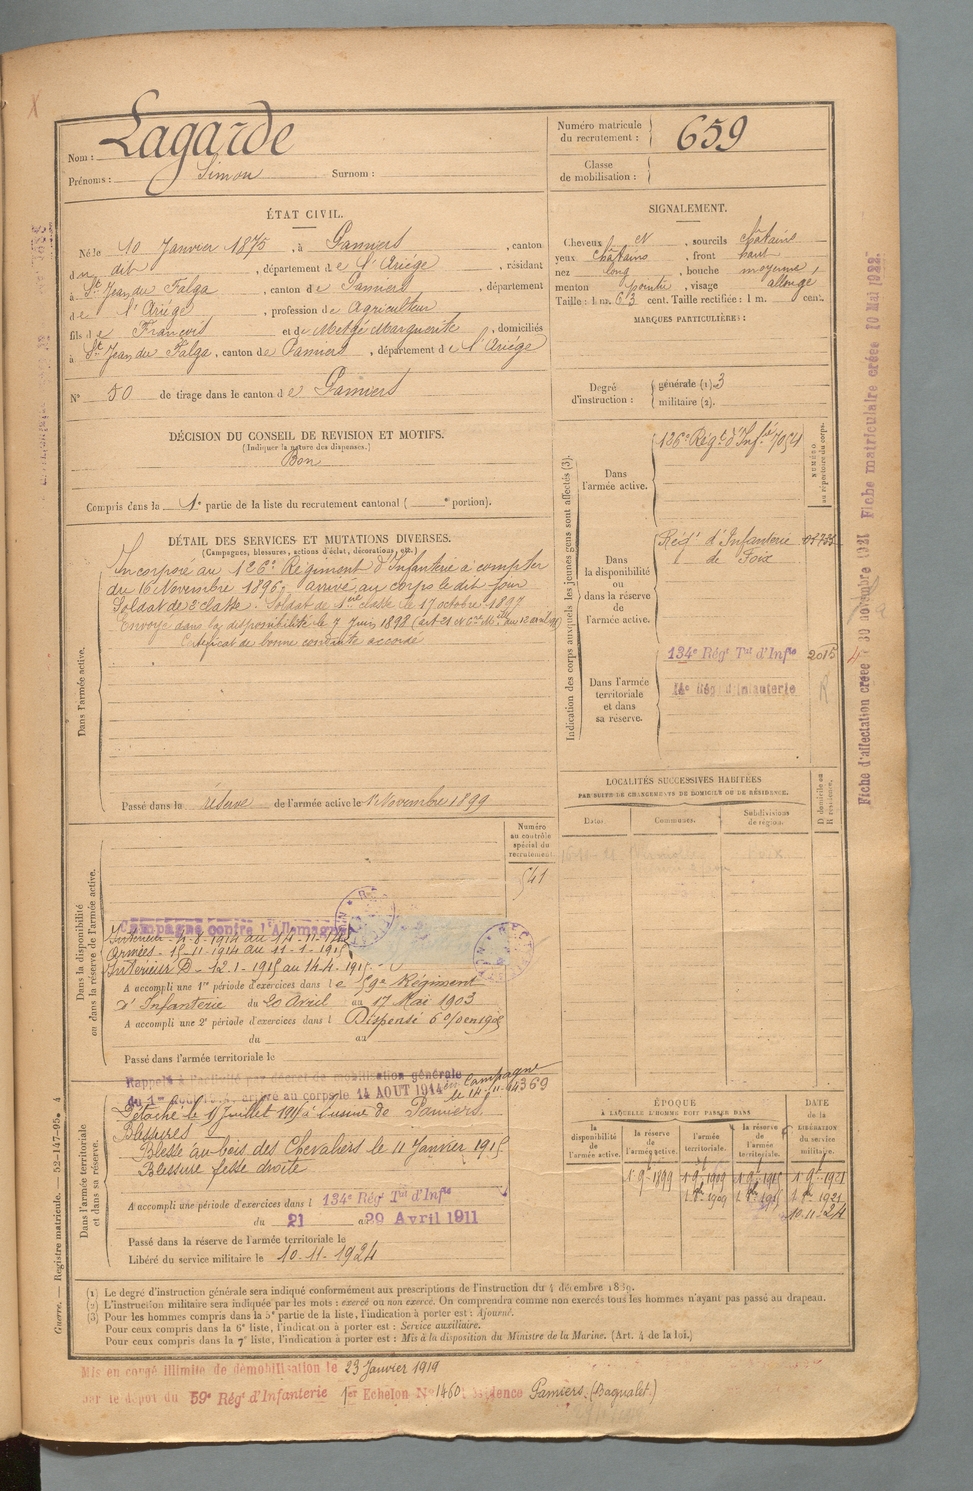 Nom : Lagarde
Prénoms : Simon Surnom :
Numéro matricule du recrutement : 659
Classe de mobilisation :
ÉTAT CIVIL.
Né le 10 Janvier 1875, à Pamiers, canton
du dit, département de l'Ariège, résidant
à St Jean du Falga, canton de Pamiers, département
de l'Ariège, profession de Agriculteur
fils de François et de Metgé Marguerite, domiciliés
à St Jean du Falga, canton de Pamiers, département de l'Ariège
N° 50 de tirage dans le canton de Pamiers
SIGNALEMENT.
Cheveux et, sourcils châtains
yeux châtains, front haut
nez long, bouche moyenne,
menton pointu, visage allongé
Taille : 1 m. 673 cent. Taille rectifiée : 1 m. cent.
MARQUES PARTICULIÈRES :
Degré d'instruction : générale (1). 3
militaire (2).
DÉCISION DU CONSEIL DE REVISION ET MOTIFS.
(Indiquer la nature des dispenses.)
Bon
Compris dans la 1e partie de la liste du recrutement cantonal ( e portion).
DÉTAIL DES SERVICES ET MUTATIONS DIVERSES.
(Campagnes, blessures, actions d'éclat, décorations, etc.)
Dans l'armée active.
Incorporé au 126e Régiment d'Infanterie à compter
du 16 Novembre 1896, arrivé au corps le dit jour
Soldat de 2e classe. Soldat de 1ère classe le 17 octobre 1897
Envoyé dans la disponibilité le 7 Juin 1898
Certificat de bonne conduite accordé
Passé dans la réserve de l'armée active le 1er Novembre 1899
Indication des corps auxquels les jeunes gens sont affectés (3).
NUMÉRO au répertoire du corps.
Dans l'armée active.
126e Régt d'Infie 7054
Dans la disponibilité ou dans la réserve de l'armée active.
Régt d'Infanterie
de Foix
Dans l'armée territoriale et dans sa réserve.
134e Régt Tal d'Infie 2015
LOCALITÉS SUCCESSIVES HABITÉES
PAR SUITE DE CHANGEMENTS DE DOMICILE OU DE RÉSIDENCE.
Dates. Communes. Subdivisions de région.
D domicile ou R résidence.
Numéro au contrôle spécial du recrutement
541
Dans la disponibilité ou dans la réserve de l'armée active.
Campagne contre l'Allemagne
Intérieur 4-8-1914 au 14-11-14
Armées - 15-11-1914 au 11-1-1915
Intérieur D - 12-1-1915 au 14-4-1915
A accompli une 1re période d'exercices dans le 59e Régiment
d'Infanterie du 20 Avril au 17 Mai 1903
A accompli une 2e période d'exercices dans l Dispensé
du au
Passé dans l'armée territoriale le
Dans l'armée territoriale et dans sa réserve.
Rappelé à l'activité par décret de mobilisation générale
du 1er Août 1914, arrivé au corps le 14 AOUT 1914
Campagne
4369
Détaché le Juillet à l'usine de Pamiers
Blessures
Blessé au bois des Chevaliers le 11 Janvier 1915
Blessure fesse droite
A accompli une période d'exercices dans l 134e Régt Tal d'Infie
du 21 au 29 Avril 1911
Passé dans la réserve de l'armée territoriale le
Libéré du service militaire le 10-11-1924
ÉPOQUE
À LAQUELLE L'HOMME DOIT PASSER DANS
la disponibilité de l'armée active.
la réserve de l'armée active.
l'armée territoriale.
la réserve de l'armée territoriale.
DATE de la LIBÉRATION du service militaire.
10-11-24
(1) Le degré d'instruction générale sera indiqué conformément aux prescriptions de l'instruction du 4 décembre 1889.
(2) L'instruction militaire sera indiquée par les mots : exercé ou non exercé. On comprendra comme non exercés tous les hommes n'ayant pas passé au drapeau.
(3) Pour les hommes compris dans la 5e partie de la liste, l'indication à porter est : Ajourné.
Pour ceux compris dans la 6e liste, l'indication à porter est : Service auxiliaire.
Pour ceux compris dans la 7e liste, l'indication à porter est : Mis à la disposition du Ministre de la Marine. (Art. 4 de la loi.)
Mis en congé illimité de démobilisation le 23 Janvier 1919
par le dépôt du 59e Régt d'Infanterie 1er Echelon N° 1460 résidence Pamiers (Bagnalet)
Guerre. — Registre matricule. — 52-147-95. 4
Fiche d'affectation créée 30 novembre 1921 Fiche matriculaire créée 10 Mai 1922.